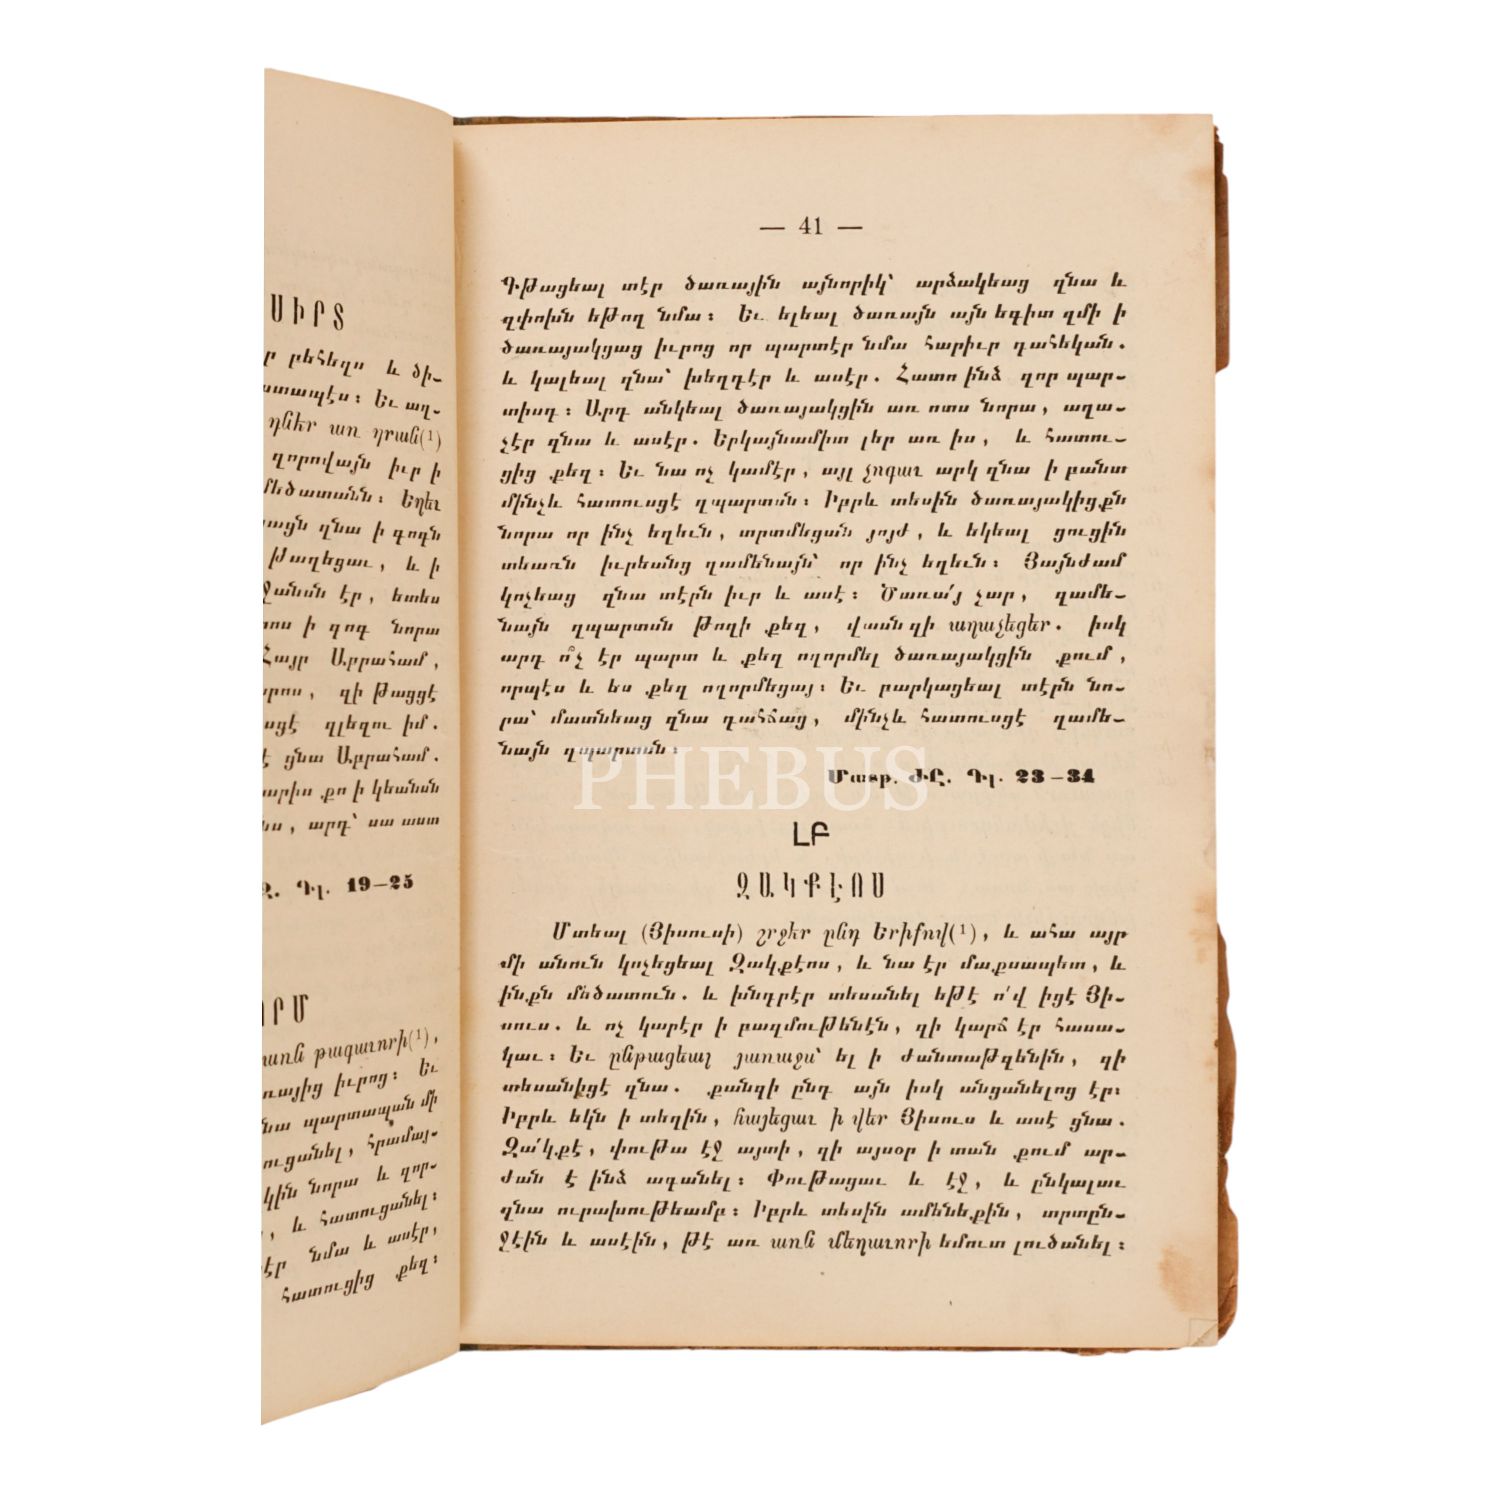 ՍԻՐՏ
ր բեհեզս և ծի-
ստապէս։ Եւ աղ-
դնէր առ դրան(1)
զորովայն իւր ի
մեծատանն։ Եղեւ
այցն զնա ի գոգն
թաղեցաւ, և ի
ջանսն էր, ետես
րոս ի գոգ նորա
Հայր Աբրահամ,
րոս, զի թացցէ
սցէ զլեզու իմ.
է ցնա Աբրահամ.
արիս քո ի կեանսն
ես, արդ՝ սա աստ
Գլ. 19–25
ՈՐՄ
առն թագաւորի(1),
ռայից իւրոց։ Եւ
նա պարտապան մի
ուցանել, հրամայ-
կին նորա և զոր-
, և հատուցանել։
էր նմա և ասէր,
հատուցից քեզ։
— 41 —
Գթացեալ տէր ծառային այնորիկ՝ արձակեաց զնա և
զփոխն եթող նմա։ Եւ ելեալ ծառայն այն եգիտ զմի ի
ծառայակցաց իւրոց որ պարտէր նմա հարիւր դահեկան.
և կալեալ զնա՝ խեղդէր և ասէր. Հատո ինձ զոր պար-
տիսդ։ Արդ անկեալ ծառայակցին առ ոտս նորա, աղա-
չէր զնա և ասէր. Երկայնամիտ լեր առ իս, և հատու-
ցից քեզ։ Եւ նա ոչ կամէր, այլ չոգաւ արկ զնա ի բանտ
մինչև հատուսցէ զպարտսն։ Իբրև տեսին ծառայակիցքն
նորա որ ինչ եղեւն, տրտմեցան յոյժ, և եկեալ ցուցին
տեառն իւրեանց զամենայն՝ որ ինչ եղեւն։ Յայնժամ
կոչեաց զնա տէրն իւր և ասէ։ Ծառա՛յ չար, զամե-
նայն զպարտսն թողի քեզ, վասն զի աղաչեցեր. իսկ
արդ ո՞չ էր պարտ և քեզ ողորմել ծառայակցին քում,
որպէս և ես քեզ ողորմեցայ։ Եւ բարկացեալ տէրն նո-
րա՝ մատնեաց զնա դահճաց, մինչև հատուսցէ զամե-
նայն զպարտսն։
PHEBUS
Մատթ. ԺԸ. Գլ. 23–34
ԼԲ
ԶԱԿՔԷՈՍ
Մտեալ (Յիսուսի) շրջէր ընդ Երիքով(1), և ահա այր
մի անուն կոչեցեալ Զակքէոս, և նա էր մաքսապետ, և
ինքն մեծատուն. և խնդրէր տեսանել եթէ ո՛վ իցէ Յի-
սուս. և ոչ կարէր ի բազմութենէն, զի կարճ էր հասա-
կաւ։ Եւ ընթացեալ յառաջս՝ ել ի ժանտաթզենին, զի
տեսանիցէ զնա. քանզի ընդ այն իսկ անցանելոց էր։
Իբրև եկն ի տեղին, հայեցաւ ի վեր Յիսուս և ասէ ցնա.
Զա՛կքէ, փութա էջ այտի, զի այսօր ի տան քում ար-
ժան է ինձ ագանել։ Փութացաւ և էջ, և ընկալաւ
զնա ուրախութեամբ։ Իբրև տեսին ամենեքին, տրտըն-
ջէին և ասէին, թէ առ առն մեղաւորի եմուտ լուծանել։